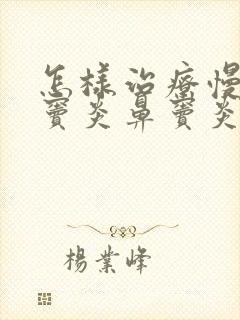 怎様治療慢
竇炎鼻竇炎
楊業峰